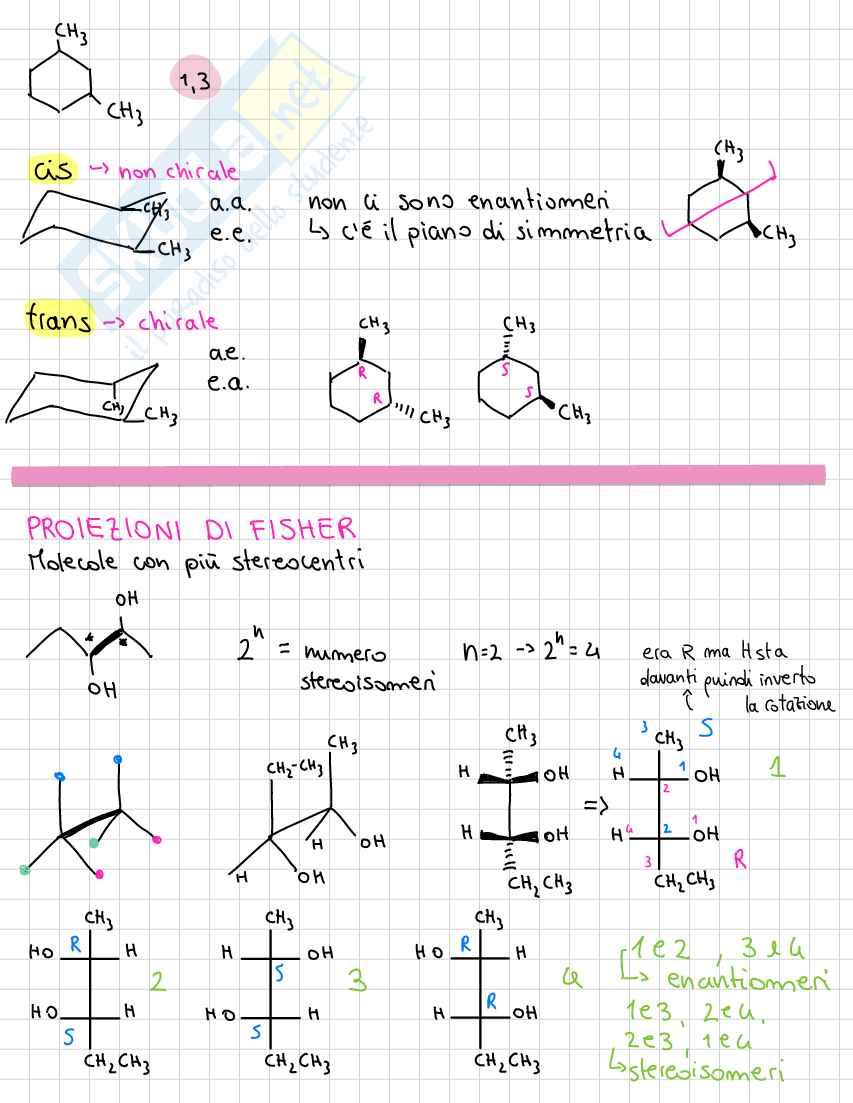 CH3
1,3
CH3
cis → non chirale
CH3
CH3
a.a.
e.e.
non ci sono enantiomeri
↳ c'é il piano di simmetria
CH3
CH3
trans → chirale
CH3
CH3
a.e.
e.a.
CH3
R
R
CH3
CH3
S
S
CH3
SKUOLA.net
il paradiso dello studente
PROIEZIONI DI FISHER
Molecole con più stereocentri
OH
* *
OH
2ⁿ = numero
stereoisomeri
n=2 → 2ⁿ=4
era R ma H sta
davanti quindi inverto
la rotazione
CH2-CH3
CH3
H
OH
H
OH
CH3
H OH
H OH
CH2CH3
=>
3 CH3 S
4 H 1 OH 1
2
H 4 2 1 OH
3 R
CH2CH3
CH3
HO R H
2
HO H
S
CH2CH3
CH3
H OH
S
3
HO H
S
CH2CH3
CH3
HO R H
4
H R OH
CH2CH3
1 e 2 , 3 e 4
↳ enantiomeri
1e3, 2e4,
2e3, 1e4
↳ stereoisomeri